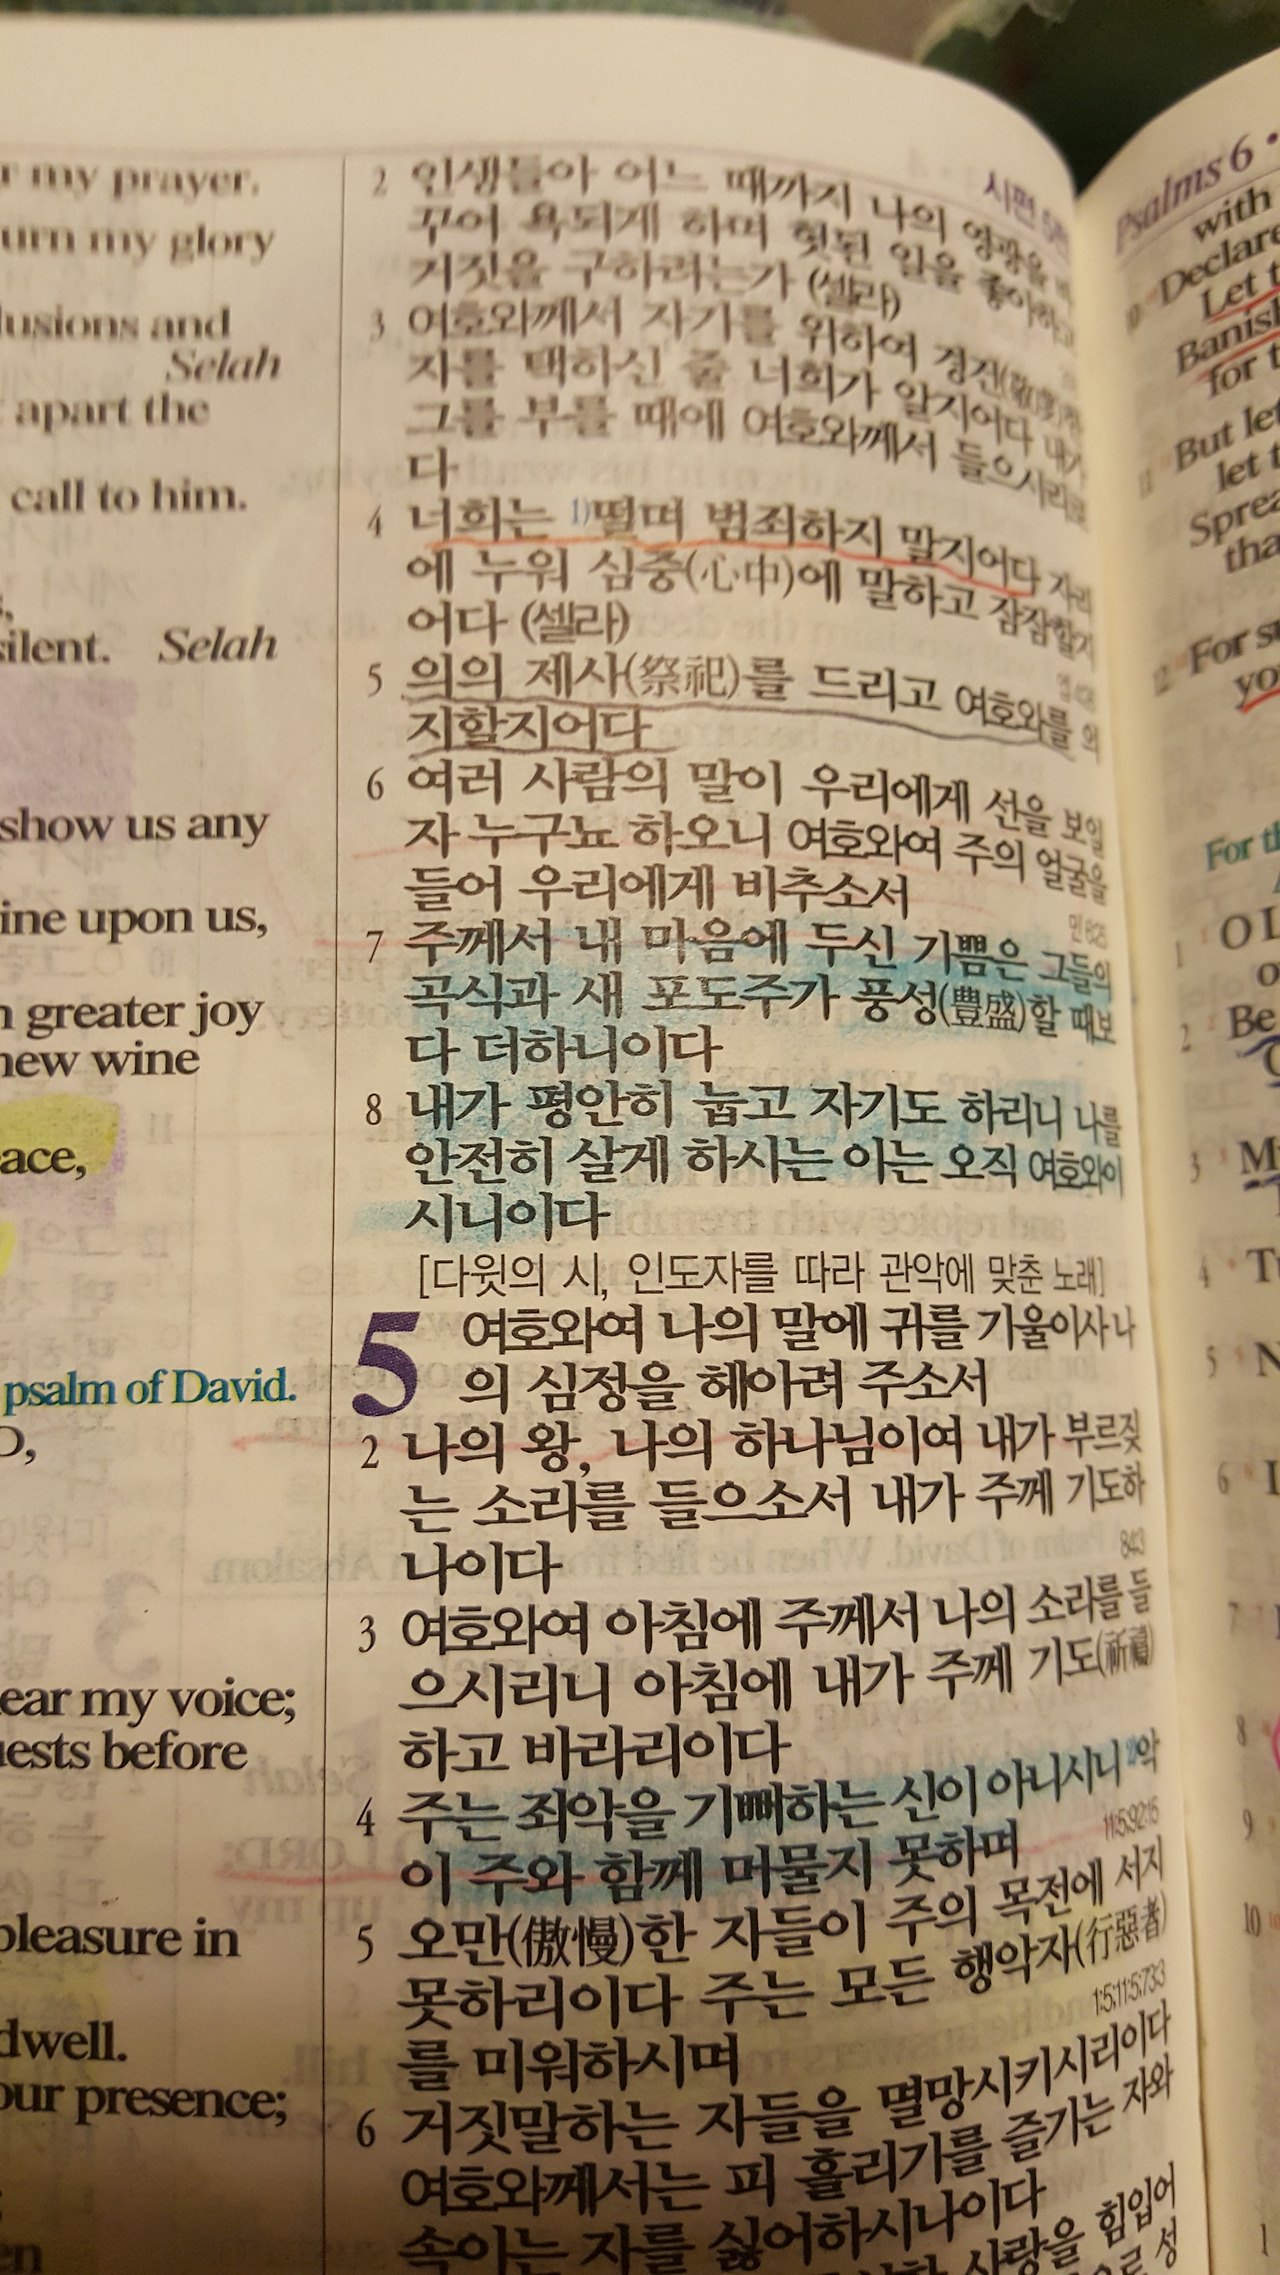 r my prayer.
urn my glory
lusions and
Selah
apart the
call to him.
silent. Selah
show us any
ine upon us,
n greater joy
new wine
ace,
psalm of David.
ear my voice;
uests before
pleasure in
dwell.
our presence;
en
시편 5
2 인생들아 어느 때까지 나의 영광을 바
꾸어 욕되게 하며 헛된 일을 좋아하고
거짓을 구하려는가 (셀라)
3 여호와께서 자기를 위하여 경건(敬虔)한
자를 택하신 줄 너희가 알지어다 내가
그를 부를 때에 여호와께서 들으시리로
다
4 너희는 1)떨며 범죄하지 말지어다 자리
에 누워 심중(心中)에 말하고 잠잠할지
어다 (셀라)
5 의의 제사(祭祀)를 드리고 여호와를 의
지할지어다
6 여러 사람의 말이 우리에게 선을 보일
자 누구뇨 하오니 여호와여 주의 얼굴을
들어 우리에게 비추소서
민 6:26
7 주께서 내 마음에 두신 기쁨은 그들의
곡식과 새 포도주가 풍성(豊盛)할 때보
다 더하니이다
8 내가 평안히 눕고 자기도 하리니 나를
안전히 살게 하시는 이는 오직 여호와이
시니이다
[다윗의 시, 인도자를 따라 관악에 맞춘 노래]
5 여호와여 나의 말에 귀를 기울이사 나
의 심정을 헤아려 주소서
2 나의 왕, 나의 하나님이여 내가 부르짖
는 소리를 들으소서 내가 주께 기도하
나이다
84:3
3 여호와여 아침에 주께서 나의 소리를 들
으시리니 아침에 내가 주께 기도(祈禱)
하고 바라리이다
4 주는 죄악을 기뻐하는 신이 아니시니 2)악
이 주와 함께 머물지 못하며
11:5;92:15
5 오만(傲慢)한 자들이 주의 목전에 서지
못하리이다 주는 모든 행악자(行惡者)
를 미워하시며
1:5;11:5;73:3
6 거짓말하는 자들을 멸망시키시리이다
여호와께서는 피 흘리기를 즐기는 자와
속이는 자를 싫어하시나이다
사랑을 힘입어
성
Psalms 6 •
with
10 Declare
Let t
Banish
for t
11 But let
let t
Sprea
tha
12 For su
yo
For th
1 O L
2 Be
3 My
4
5
6 I
7
8
9
10